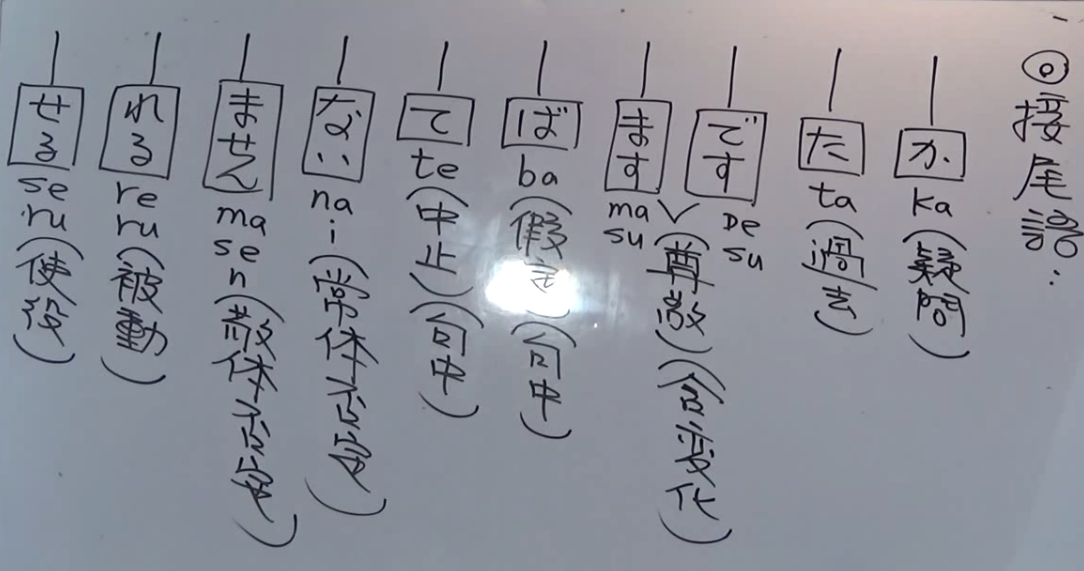 ◎接尾語：
か ka (疑問)
た ta (過去)
です Desu
ます masu
(尊敬) (含変化)
ば ba (假定) (句中)
て te (中止) (句中)
ない nai (常体否定)
ません masen (敬体否定)
れる reru (被動)
せる seru (使役)